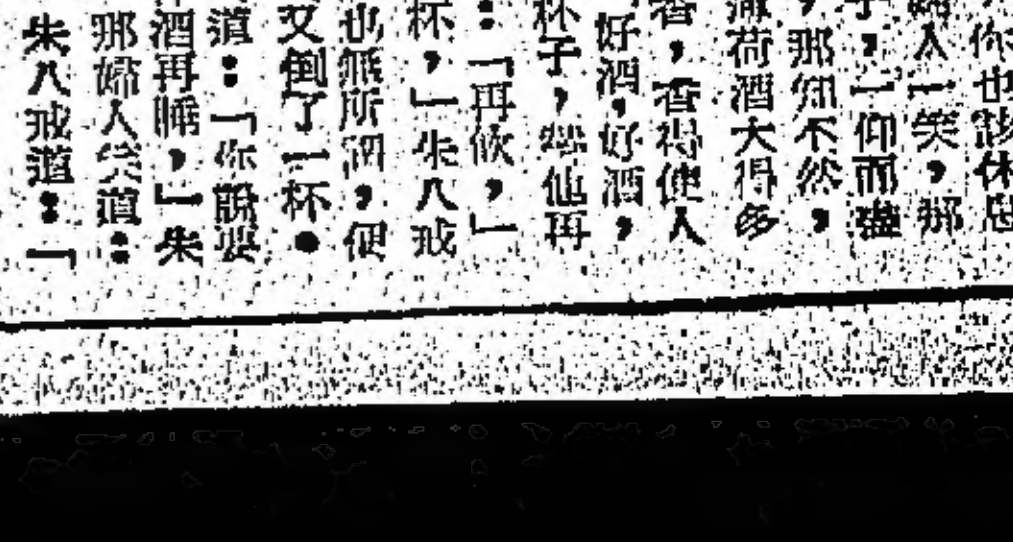 你也該休息
婦人一笑，那
子，一仰而盡
，那知不然，
荷酒大得多
香，香得使人
好酒，好酒，
杯子，他再
：「再飲，」
杯，」朱八戒
也無所謂，便
又倒了一杯。
道：「你說要
酒再睡，」朱
那婦人笑道：
朱八戒道：「